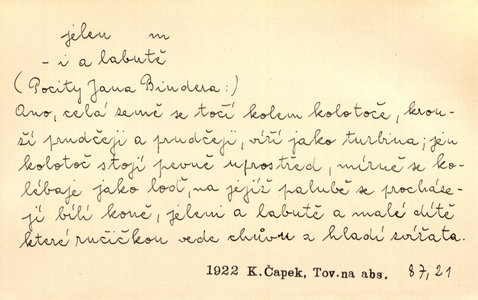 jelen m
- i a labutě
(Pocity Jana Bindera:)
Ano, celá země se točí kolem kolotoče, krou-
ží prudčeji a prudčeji, víří jako turbina; jen
kolotoč stojí pevně uprostřed, mírně se ko-
lébaje jako loď, na jejíž palubě se procháze-
jí bílí koně, jeleni a labutě a malé dítě
které ručičkou vede chůvu a hladí zvířata.
1922 K.Čapek, Tov.na abs. 87,21